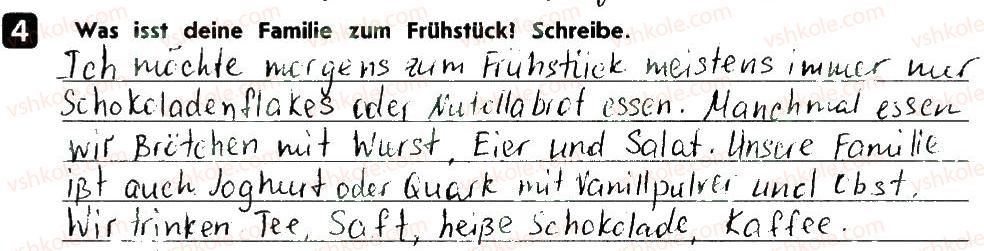 4 Was isst deine Familie zum Frühstück? Schreibe.
Ich möchte morgens zum Frühstück meistens immer nur
Schokoladenflakes oder Nutellabrot essen. Manchmal essen
wir Brötchen mit Wurst, Eier und Salat. Unsere Familie
ißt auch Joghurt oder Quark mit Vanillpulver und Obst.
Wir trinken Tee, Saft, heiße Schokolade, Kaffee.